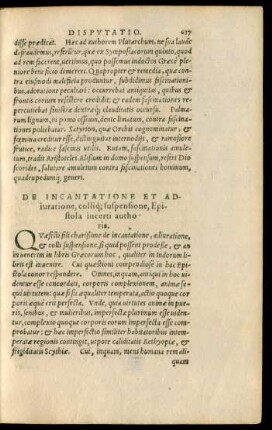 DISPVTATIO. 617
disse prædicet. Hæc ad authorem Plutarchum, ne sua laude
defraudemus, restitisse, quæ ex Symposiacorum quinto, quod
ad rem faceret, uertimus, quo possemus indoctos Græcè ple
niore beneficio demereri. Quapropter & remedia, quæ con
tra eiusmodi maleficia produntur, subdidimus fascinationi-
bus, adoratione peculiari: occurrebat antiquitas, quibus &
frontis eorum resistere credidit: & eadem fascinationes re-
percutiebat similiter dextráq; claudicatis occursu. Palma-
rum lignum, ui primo ossium, dente limatum, contra fascina-
tiones pollebat. Satyrion, quæ Orchis cognominatur, &
radice distinguitur internodijs, & ramosiore
frutice, radice fascinis utilis. Rutam, fascinationis amule-
tum, tradit Aristoteles Alysum in domo suspensum, refert Dio
scorides, salutare amuletum contra fascinationes hominum,
quadrupedumq; generi.
DE INCANTATIONE ET AD-
iuratione, colliq; suspensione, Epi-
stola incerti autho-
ris.
QVæsisti fili charissime de incantatione, adiuratione,
& colli suspensione, si quid possent prodesse, & an
inuenerim in libris Græcorum hoc, qualiter in Indorum li-
bris est inuenire. Cui quæstioni compendiosè in hac Epi-
stola conor respondere. Omnes, inquam, antiqui in hoc ui-
dentur esse concordati, corporis complexionem, animæ se-
qui uirtutem: quæ si sit æqualiter temperata, actio quoque cor
poris quod erit perfecta. Vnde, quia uirtutes animæ in pue-
ris, senibus, & mulieribus, imperfectæ plurimùm esse uiden-
tur, complexio quoque corporis eorum imperfecta esse com-
probatur: & similiter imperfectæ habitatoribus intem-
peratæ regionis contingit, utpote caliditatis Aethyopiæ, &
frigiditatis Scythiæ. Cui, inquam, mens humana rem ali-
quam